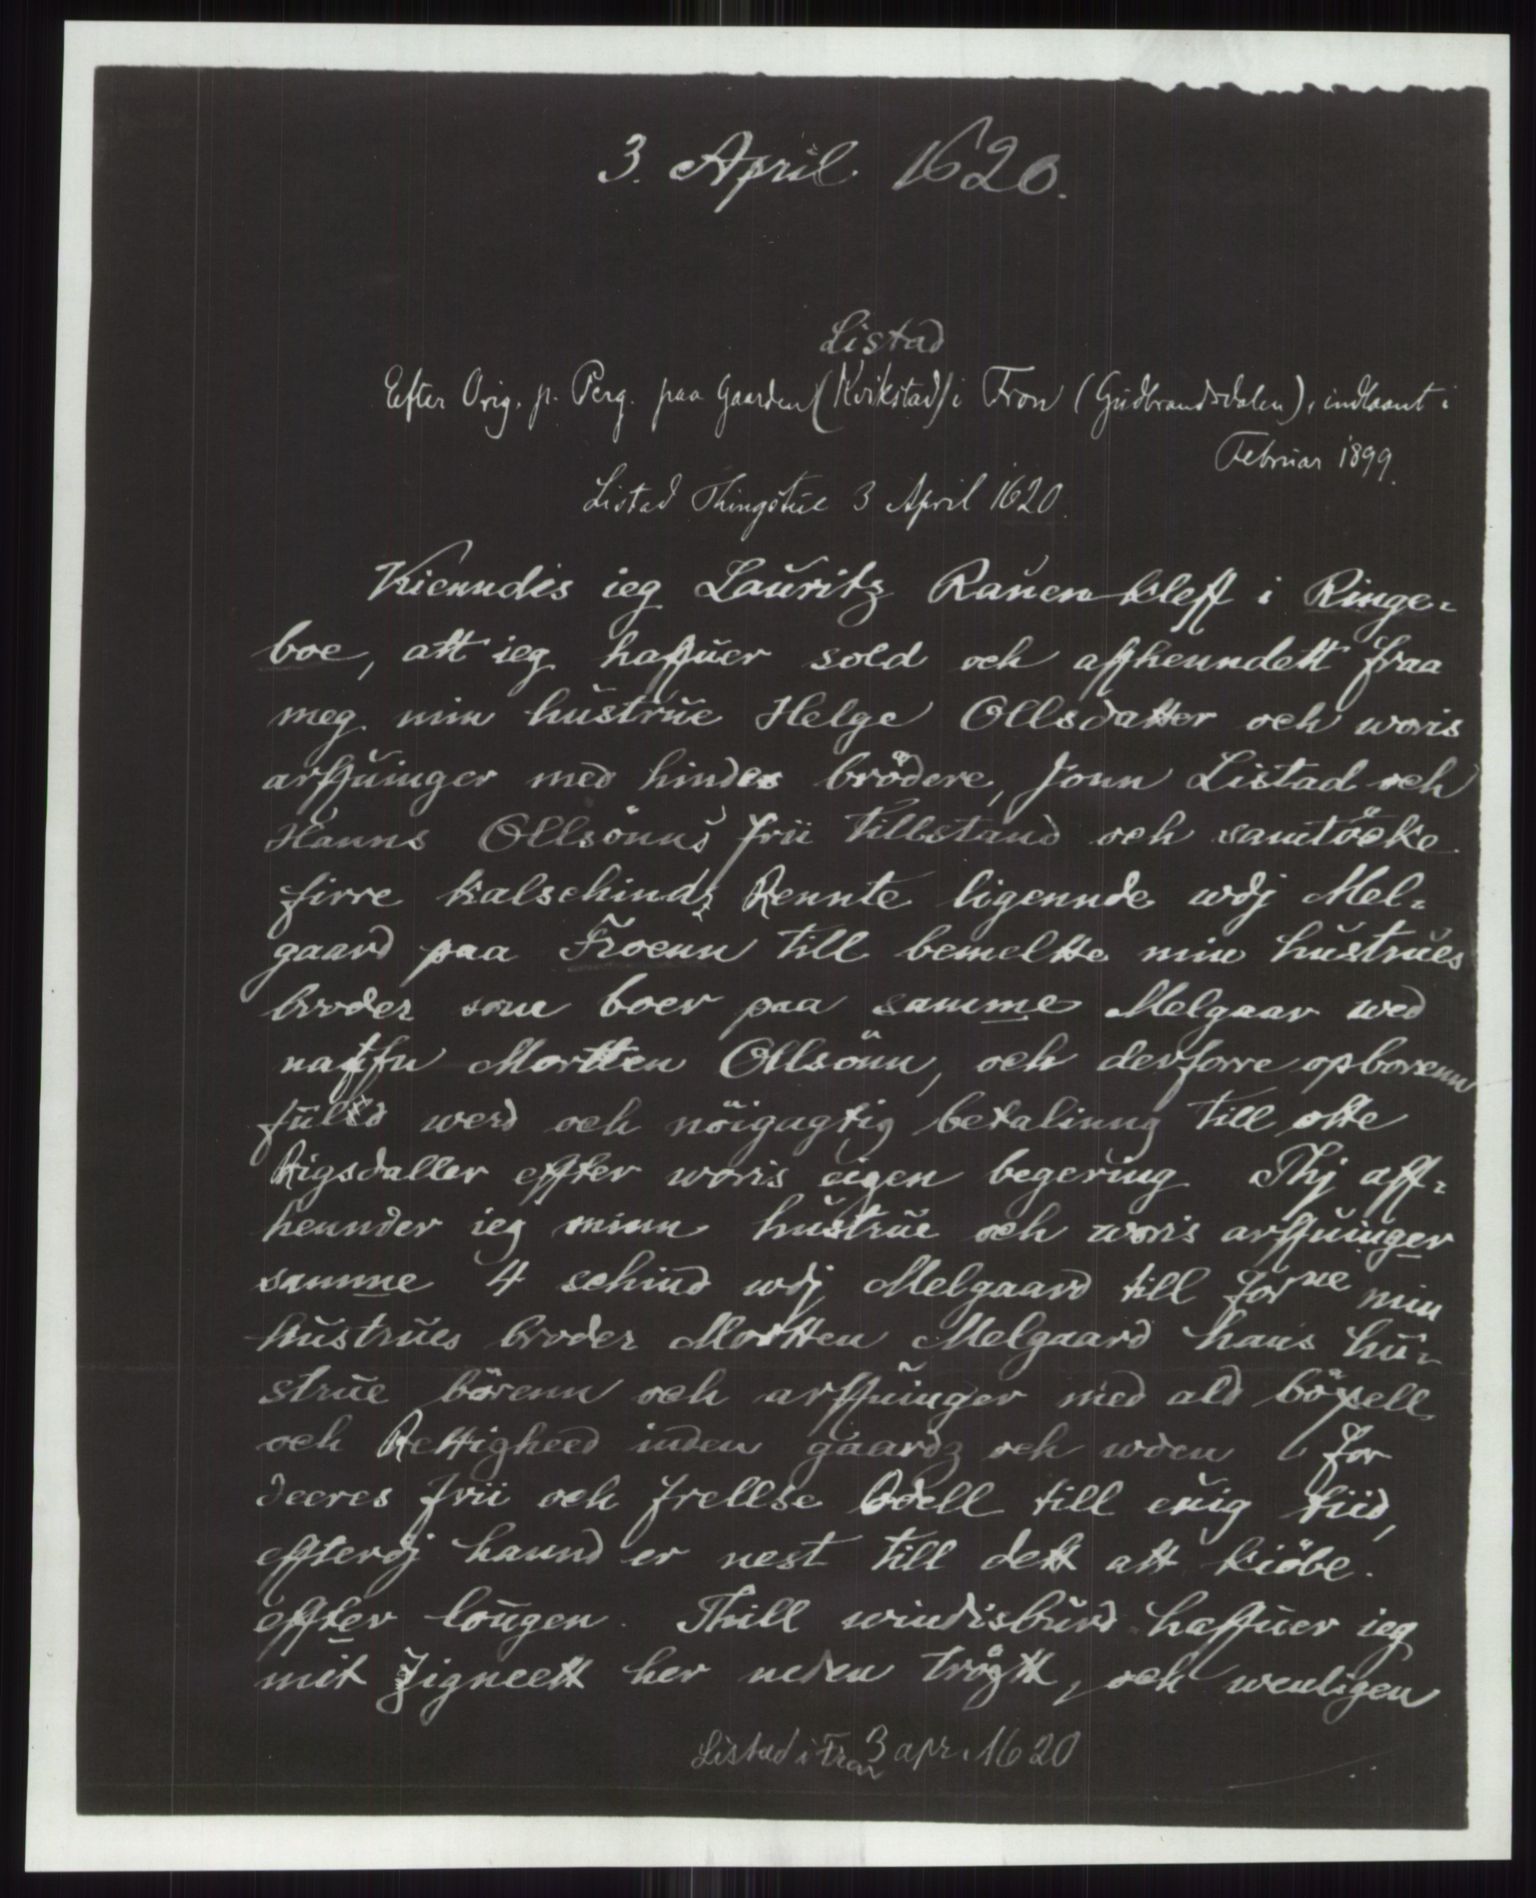 3. April 1620.
Listad
Efter Orig. p. Perg. paa Gaarden (Kvikstad) i Fron (Gudbrandsdalen), indlaant i
Februar 1899.
Listad Thingstue 3 April 1620.
Kienndis ieg Lauritz Rauenkleff i Ringe-
boe, att ieg haffuer sold och affhenndett fraa
meg min hustrue Helge Ollsdatter och woris
arffuinger med hindes brödere, Jonn Listad och
Hanns Ollsönns frii tillstand och samtöcke
firre kalschindz Rennte ligennde wdj Mel-
gaard paa Froenn till bemeltte min hustrues
broder som boer paa samme Melgaar wed
naffn Mortten Ollsönn, och derforre opborenn
fuld werd och nöigagtig betalinng till otte
Rigsdaller effter woris eigen begering Thj aff-
hennder ieg minn hustrue och woris arffuinger
samme 4 schind wdj Melgaard till forne min
hustrues broder Mortten Melgaard hans hu-
strue börenn och arffuinger med ald böxell
och Rettigheed inden gaardz och wden for
deeres frii och frellse Odell till euig tiid,
effterdj hannd er nest till dett att kiöbe
effter lougen. Thill windisburd haffuer ieg
mit Zigneett her neden trögtt, och wenligen
Listad i Fron 3 apr. 1620